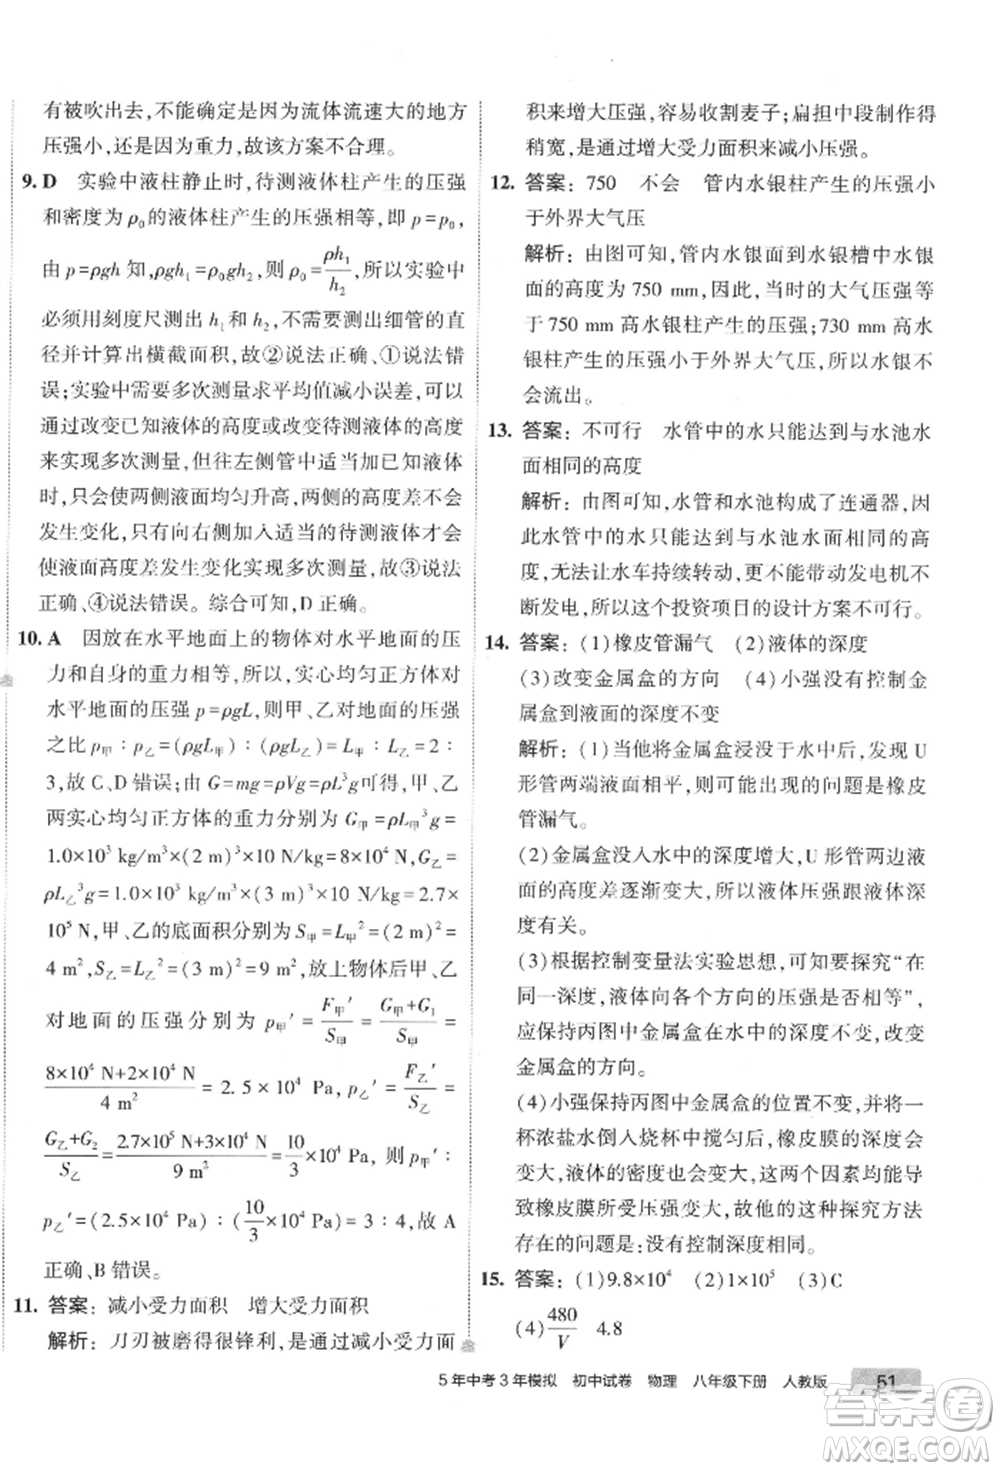 有被吹出去,不能确定是因为流体流速大的地方
压强小、还是因为重力,故该方案不合理。
9. D 实验中液柱静止时,待测液体柱产生的压强
和密度为ρ₀的液体柱产生的压强相等,即 p=p₀,
由 p=ρgh 知,ρgh₁=ρ₀gh₂,则ρ₀=ρh₁/h₂,所以实验中
必须用刻度尺测出 h₁和 h₂,不需要测出细管的直
径并计算出横截面积,故②说法正确、①说法错
误;实验中需要多次测量求平均值减小误差,可以
通过改变已知液体的高度或改变待测液体的高度
来实现多次测量,但往左侧管中适当加入液体时,
只会使两侧液面均匀升高,两侧的高度差不会
发生变化,只有向右侧加入适当的待测液体时,才
能使液面高度差发生变化实现多次测量,故③说法
正确、④说法错误。综合可知,D 正确。
10. A 因放在水平地面上的物体对水平地面的压
力和自身的重力相等,所以,实心均匀正方体对
水平地面的压强 p=ρgL,则甲、乙对地面的压强
之比 p甲∶p乙=(ρgL甲)∶(ρgL乙)=L甲∶L乙=2∶
3,故 C、D 错误;由 G=mg=ρVg=ρL³g可得,甲、乙
两实心均匀正方体的重力分别为 G甲=ρL甲³g=
1.0×10³ kg/m³×(2 m)³×10 N/kg=8×10⁴ N,G乙=
ρL乙³g=1.0×10³ kg/m³×(3 m)³×10 N/kg=2.7×
10⁵ N,甲、乙的底面积分别为 S甲=L甲²=(2 m)²=
4 m²,S乙=L乙²=(3 m)²=9 m²,放上物体后甲、乙
对地面的压强分别为 p甲′=F甲′/S甲=(G甲+G₁)/S甲=
(8×10⁴ N+2×10⁴ N)/4 m²=2.5×10⁴ Pa,p乙′=F乙′/S乙=
(G乙+G₂)/S乙=(2.7×10⁵ N+3×10⁴ N)/9 m²=10/3×10⁴ Pa,则 p甲′∶
p乙′=(2.5×10⁴ Pa)∶(10/3×10⁴ Pa)=3∶4,故 A
正确、B 错误。
11. 答案:减小受力面积 增大受力面积
解析:刀刃被磨得很锋利,是通过减小受力面
积来增大压强,容易收割麦子;扁担中段制作得
稍宽,是通过增大受力面积来减小压强。
12. 答案:750 不会 管内水银柱产生的压强小
于外界大气压
解析:由图可知,管内水银面到水银槽中水银
面的高度为 750 mm,因此,当时的大气压强等
于 750 mm 高水银柱产生的压强;730 mm 高水
银柱产生的压强小于外界大气压,所以水银不
会流出。
13. 答案:不可行 水管中的水只能达到与水池水
面相同的高度
解析:由图可知,水管和水池构成了连通器,因
此水管中的水只能达到与水池水面相同的高
度,无法让水车持续转动,更不能带动发电机不
断发电,所以这个投资项目的设计方案不可行。
14. 答案:(1)橡皮管漏气 (2)液体的深度
(3)改变金属盒的方向 (4)小强没有控制金
属盒到液面的深度不变
解析:(1)当他将金属盒浸没于水中后,发现 U
形管两端液面相平,则可能出现的问题是橡皮
管漏气。
(2)金属盒没入水中的深度增大,U 形管两边液
面的高度差逐渐变大,所以液体压强跟液体深
度有关。
(3)根据控制变量法实验思想,可知要探究“在
同一深度,液体向各个方向的压强是否相等”,
应保持丙图中金属盒在水中的深度不变,改变
金属盒的方向。
(4)小强保持丙图中金属盒的位置不变,并将一
杯浓盐水倒入烧杯中搅匀后,橡皮膜的深度会
变大,液体的密度也会变大,这两个因素均能导
致橡皮膜所受压强变大,故他的这种探究方法
存在的问题是:没有控制深度相同。
15. 答案:(1)9.8×10⁴ (2)1×10⁵ (3)C
(4)480/V 4.8
5年中考3年模拟 初中试卷 物理 八年级下册 人教版 51
答案卷
MXQE.COM